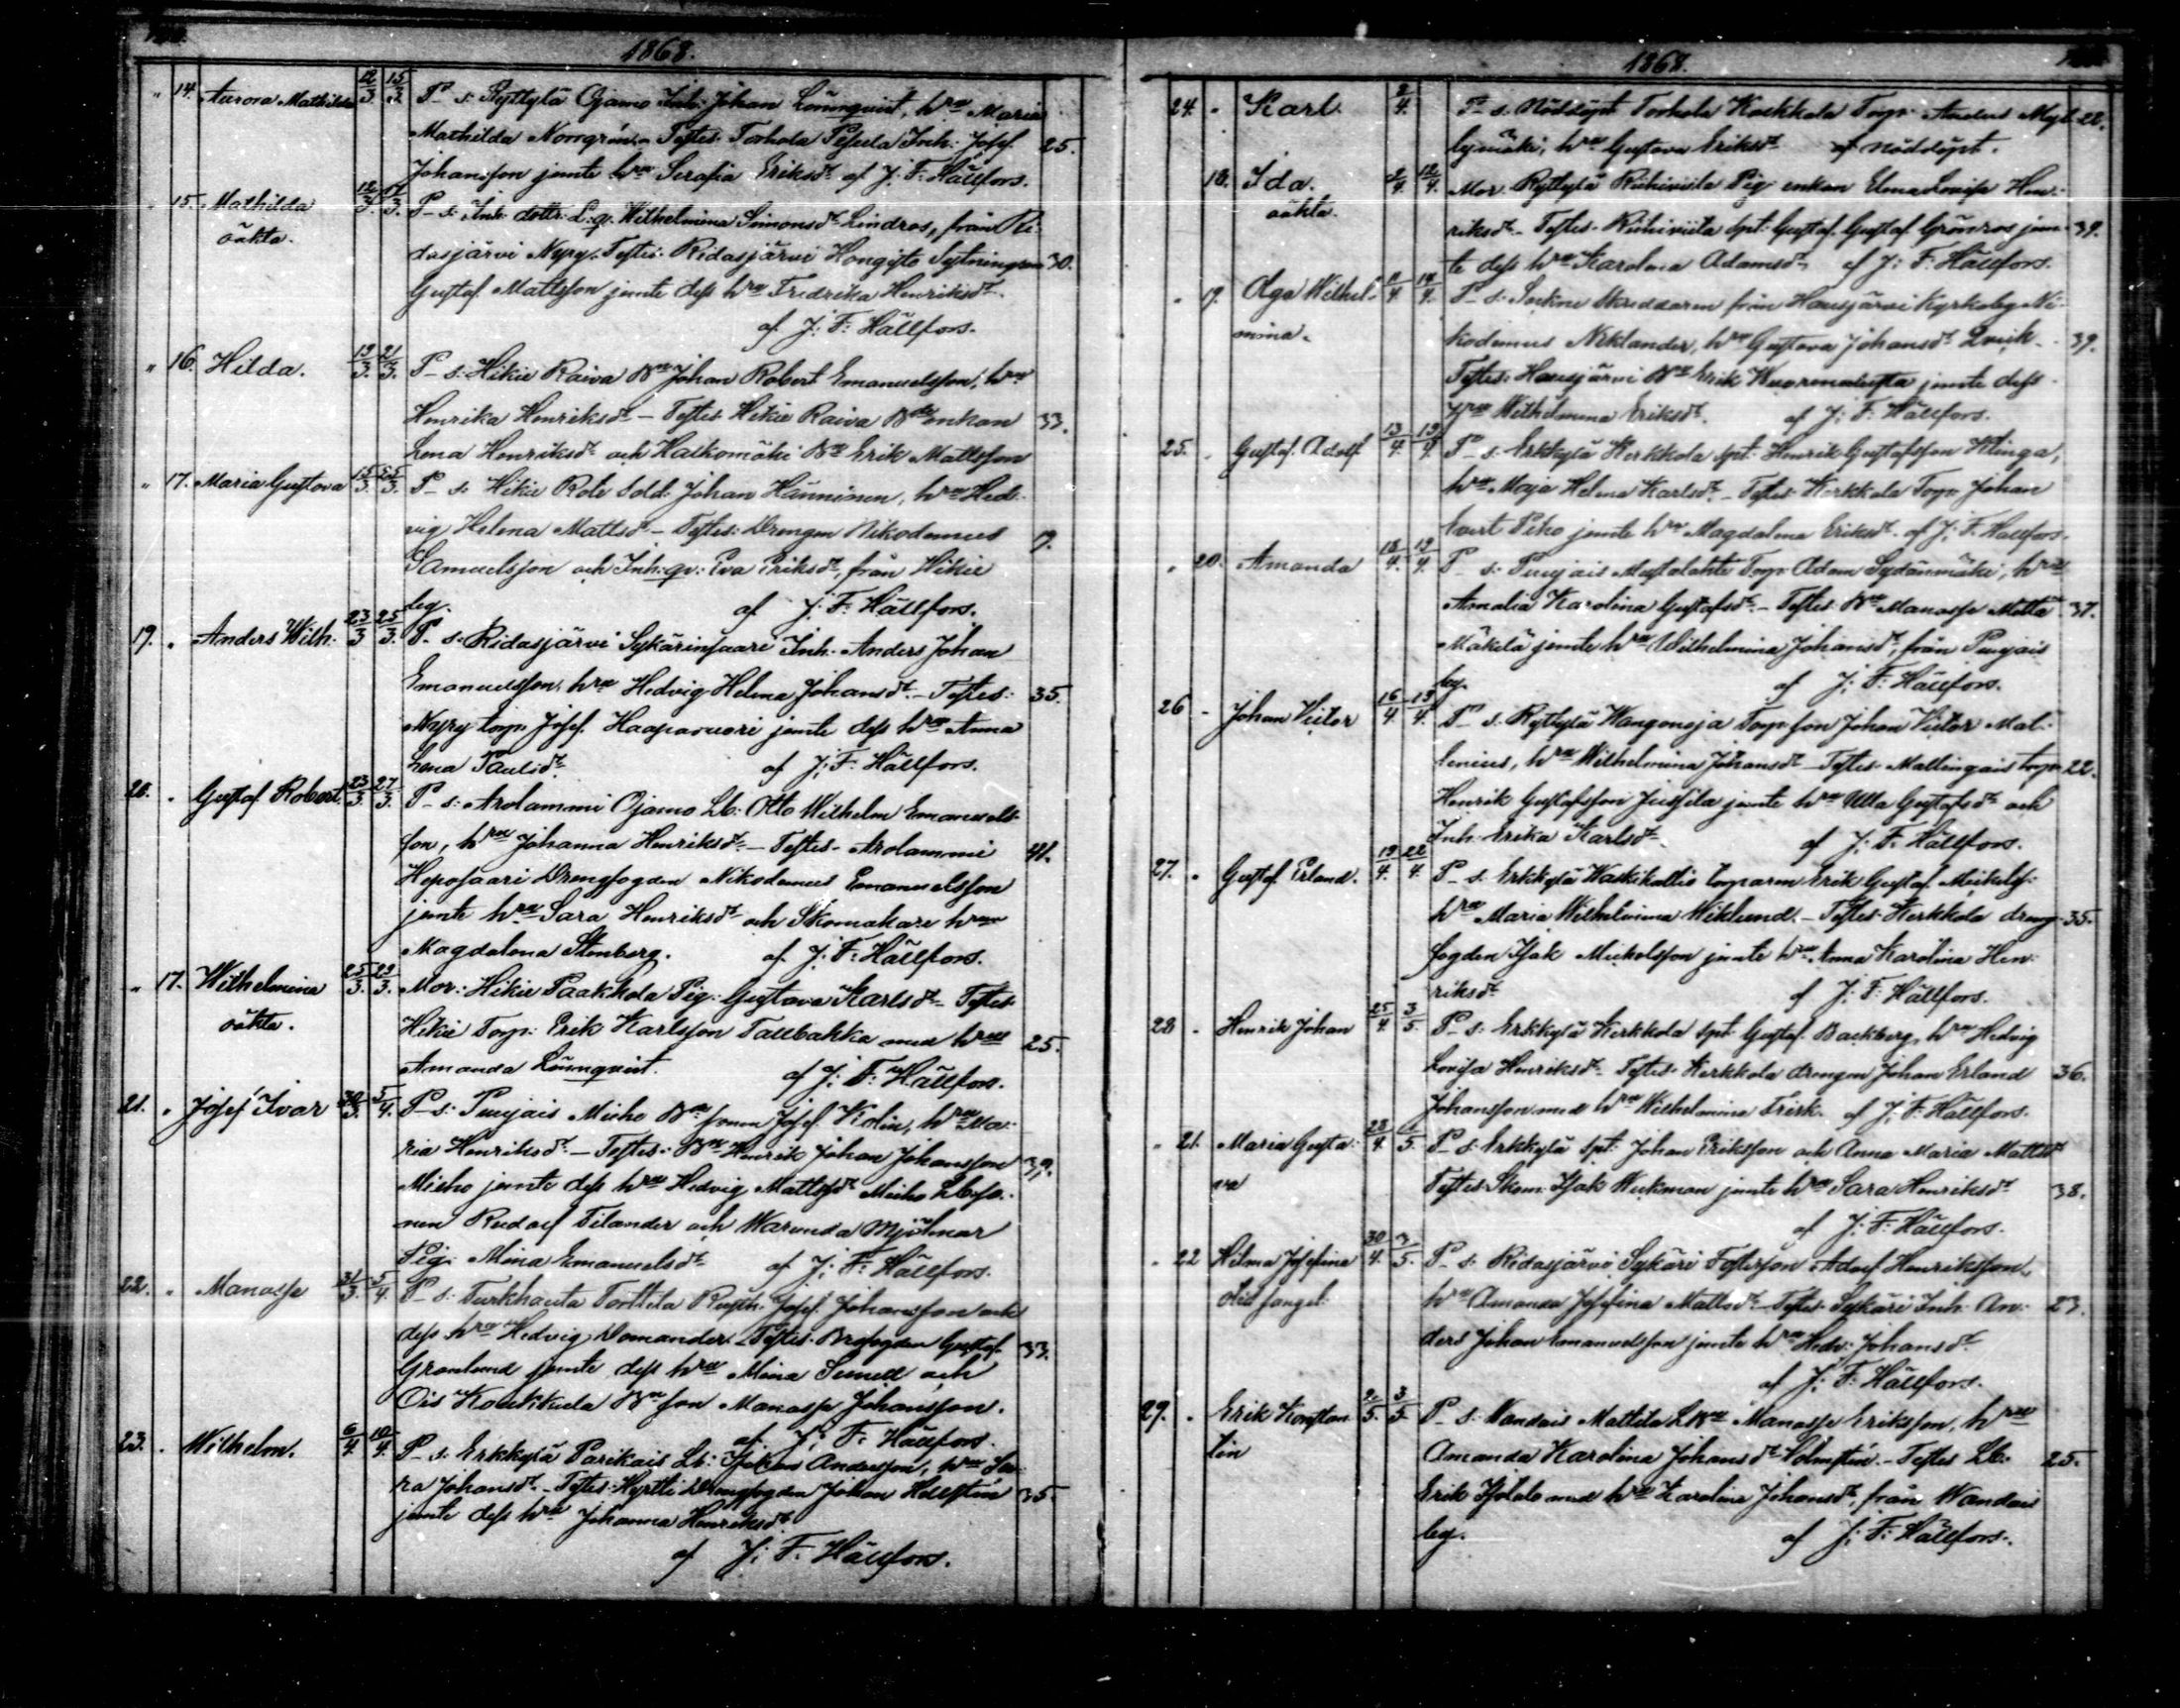 1868.
" 14. Aurora Mathilda 12/3. 15/3. P_s: Ryttylä Ojamo Inh: Johan Lönnqvist, hru Maria
Mathilda Norrgrén. Testes: Torhola Inh: Josef 25.
Johansson jemte hru Serafia Eriksdt. af J: F: Hällfors.
" 15. Mathilda 12/3. 17/3. P_s: Inh: dottr: L: q. Wilhelmina Simonsdt Lindros, från Ri-
oäkta.
dasjärvi Nyry. Testes: Ridasjärvi Hongisto Sytningsm 30.
Gustaf Mattsson jemte dess hru Fredrika Henriksdt.
af J: F: Hällfors.
" 16. Hilda. 19/3. 21/3. P_s: Hikiä Raiva Bn Johan Robert Emanuelsson, hru
Henrika Henriksdt _ Testes Hikiä Raiva Bdeenkan 33.
Lena Henriksdt och Halkomäki Bn Erik Mattsson
" 17. Maria Gustava 15/3. 25/3. P_s: Hikiä Rote Sold: Johan Hänninen, hru Hed-
vig Helena Mattsdt _ Testes: Drengen Nikodemus 7.
Samuelsson och Inh: qv: Eva Eriksdt, från Hikiä
by. af J: F: Hällfors.
19. " Anders Wilh. 23/3 25/3. P_s: Ridasjärvi Sykärinsaari Inh: Anders Johan
Emanuelsson, hru Hedvig Helena Johansdt _ Testes: 35.
Nyry torp: Josef Haapavuori jemte dess hru Anna
Lena Paulsdt. af J: F: Hällfors.
20. " Gustaf Robert 23/3. 27/3. P_s: Arolammi Ojamo Lb: Otto Wilhelm Emanuels-
son, hru Johanna Henriksdt _ Testes: Arolammi 41.
Heposaari Drengfogden Nikodemus Emanuelsson
jemte hru Sara Henriksdt och Skomakare hrun
Magdalena Stenberg. af J: F: Hällfors.
" 17. Wilhelmina 25/3. 29/3. Mor: Hikiä Paakkola Pig: Gustava Karlsdt _ Testes
oäkta.
Hikiä Torp: Erik Karlsson Tallbakka med hru 25.
Amanda Lönnqvist. af J: F: Hällfors.
21. " Josef Ivar 30/3. 5/4. P_s: Punjais Mieho Bn sonen Josef Kolin, hru Ma-
ria Henriksdt _ Testes: Bn Henrik Johan Johansson 39.
Mieho jemte dess hru Hedvig Mattsdt Mieho
Rudolf Tilander och Warunda Mjölnar
Pig: Mina Emanuelsdt. af J: F: Hällfors.
22. " Manasse 31/3. 5/4. P_s: Turkhauta Torttila Rusth: Josef Johansson och
dess hru Hedvig Domander _ Testes: Brofogden Gustaf 33.
Granlund jemte dess hru Mina Sunell och
Ois Koukkula Bn son Manasse Johansson.
af J: F: Hällfors.
23. . Wilhelm. 6/4. 10/4. P_s: Erkkylä Parikais Lb: Andersson, hru Sa-
ra Johansdt _ Testes: Hyrtti Drengfogden Johan Hellstén 35.
jemte dess hru Johanna Henriksdt
af J: F: Hällfors.
1868.
24. " Karl. 2/4. P_s. Nöddöpt Torhola Koukkola Torp: Anders Myl- 22.
lymäki, hru Gustava Eriksdt af nöddöpt.
18. Ida. 2/4. 12/4. Mor: Ryttylä Riihiviita Pig: enkan Elma Lovisa Hen-
oäkta.
riksdt _ Testes: Riihiviita spt: Gustaf Gustaf Grönroos jem- 39.
te dess hru Karolina Adamsdt. af J: F: Hällfors.
" 19. Olga Wilhel- 11/4. 14/4. P_s: Sockne Skräddaren från Hausjärvi Kyrkoby Ni-
mina.
kodemus Neklander, hru Gustava Johansdt Lmik. 39.
Testes: Hausjärvi Bn Erik jemte dess
hru Wilhelmina Eriksdt. af J: F: Hällfors.
25. " Gustaf Adolf 13/4. 19/4. P_s: Erkkylä Kerkkola spt: Henrik Gustafsson Klinga,
hru Maja Helena Karlsdt _ Testes: Kerkkola Torp: Johan
Evert Peho jemte hru Magdalena Eriksdt. af J: F: Hällfors.
" 20. Amanda 18/4. 19/4. P_s: Punjais Mustalahti Torp: Adam Sydänmäki, hru
Amalia Karolina Gustafsdt _ Testes: Bn Manasse Mattä 37.
Mäkelä jemte hru Wilhelmina Johansdt, från Punjais
by. af J: F: Hällfors.
26 " Johan Victor 16/4. 19/4. P_s: Ryttylä Wangonoja Torp: son Johan Victor Mal-
lenius, hru Wilhelmina Johansdt _ Testes: Mallingais torp: 22.
Henrik Gustafsson Jussila jemte hru Ulla Gustafsdt och
Inh: Erika Karlsdt. af J: F: Hällfors.
27. " Gustaf Erland. 19/4. 22/4. P_s: Erkkylä Waskikallio Torparen Erik Gustaf Mickelss:
hru Maria Wilhelmina Wiklund. _ Testes: Kerkkola dreng- 35.
fogden Isak Mickelsson jemte hru Anna Karolina Hen-
riksdt. af J: F: Hällfors.
28 " Henrik Johan 25/4. 3/5. P_s: Erkkylä Kerkkola spt: Gustaf Backberg, hru Hedvig
Lovisa Henriksdt _ Testes: Kerkkola drengen Johan Erland 36.
Johansson med hru Wilhelmina Frisk. af J: F: Hällfors.
" 21. Maria Gusta- 28/4. 1/5. P_s: Erkkylä spt: Johan Eriksson och Anna Maria Mattsdt
va
Testes: Skom: Isak Wickman jemte hru Sara Henriksdt 38.
af J: F: Hällfors.
" 22 Hilma Josefina 30/4. 3/5. P_s: Ridasjärvi Sykäri Fosterson Adolf Henriksson,
hru Amanda Josefina Mattsdt _ Testes: Sykäri Inh: An- 23.
ders Johan Emanuelsson jemte hru Hedv: Johansdt.
af J: F: Hällfors.
29. " Erik Konstan- 2/5. 3/5. P_s: Wandais Mattila LBn Manasse Eriksson, hru
tin
Amanda Karolina Johansdt Holmstén. _ Testes Lb: 25.
Erik Isotalo med hru Karolina Johansdt, från Wandais
by. af J: F: Hällfors.